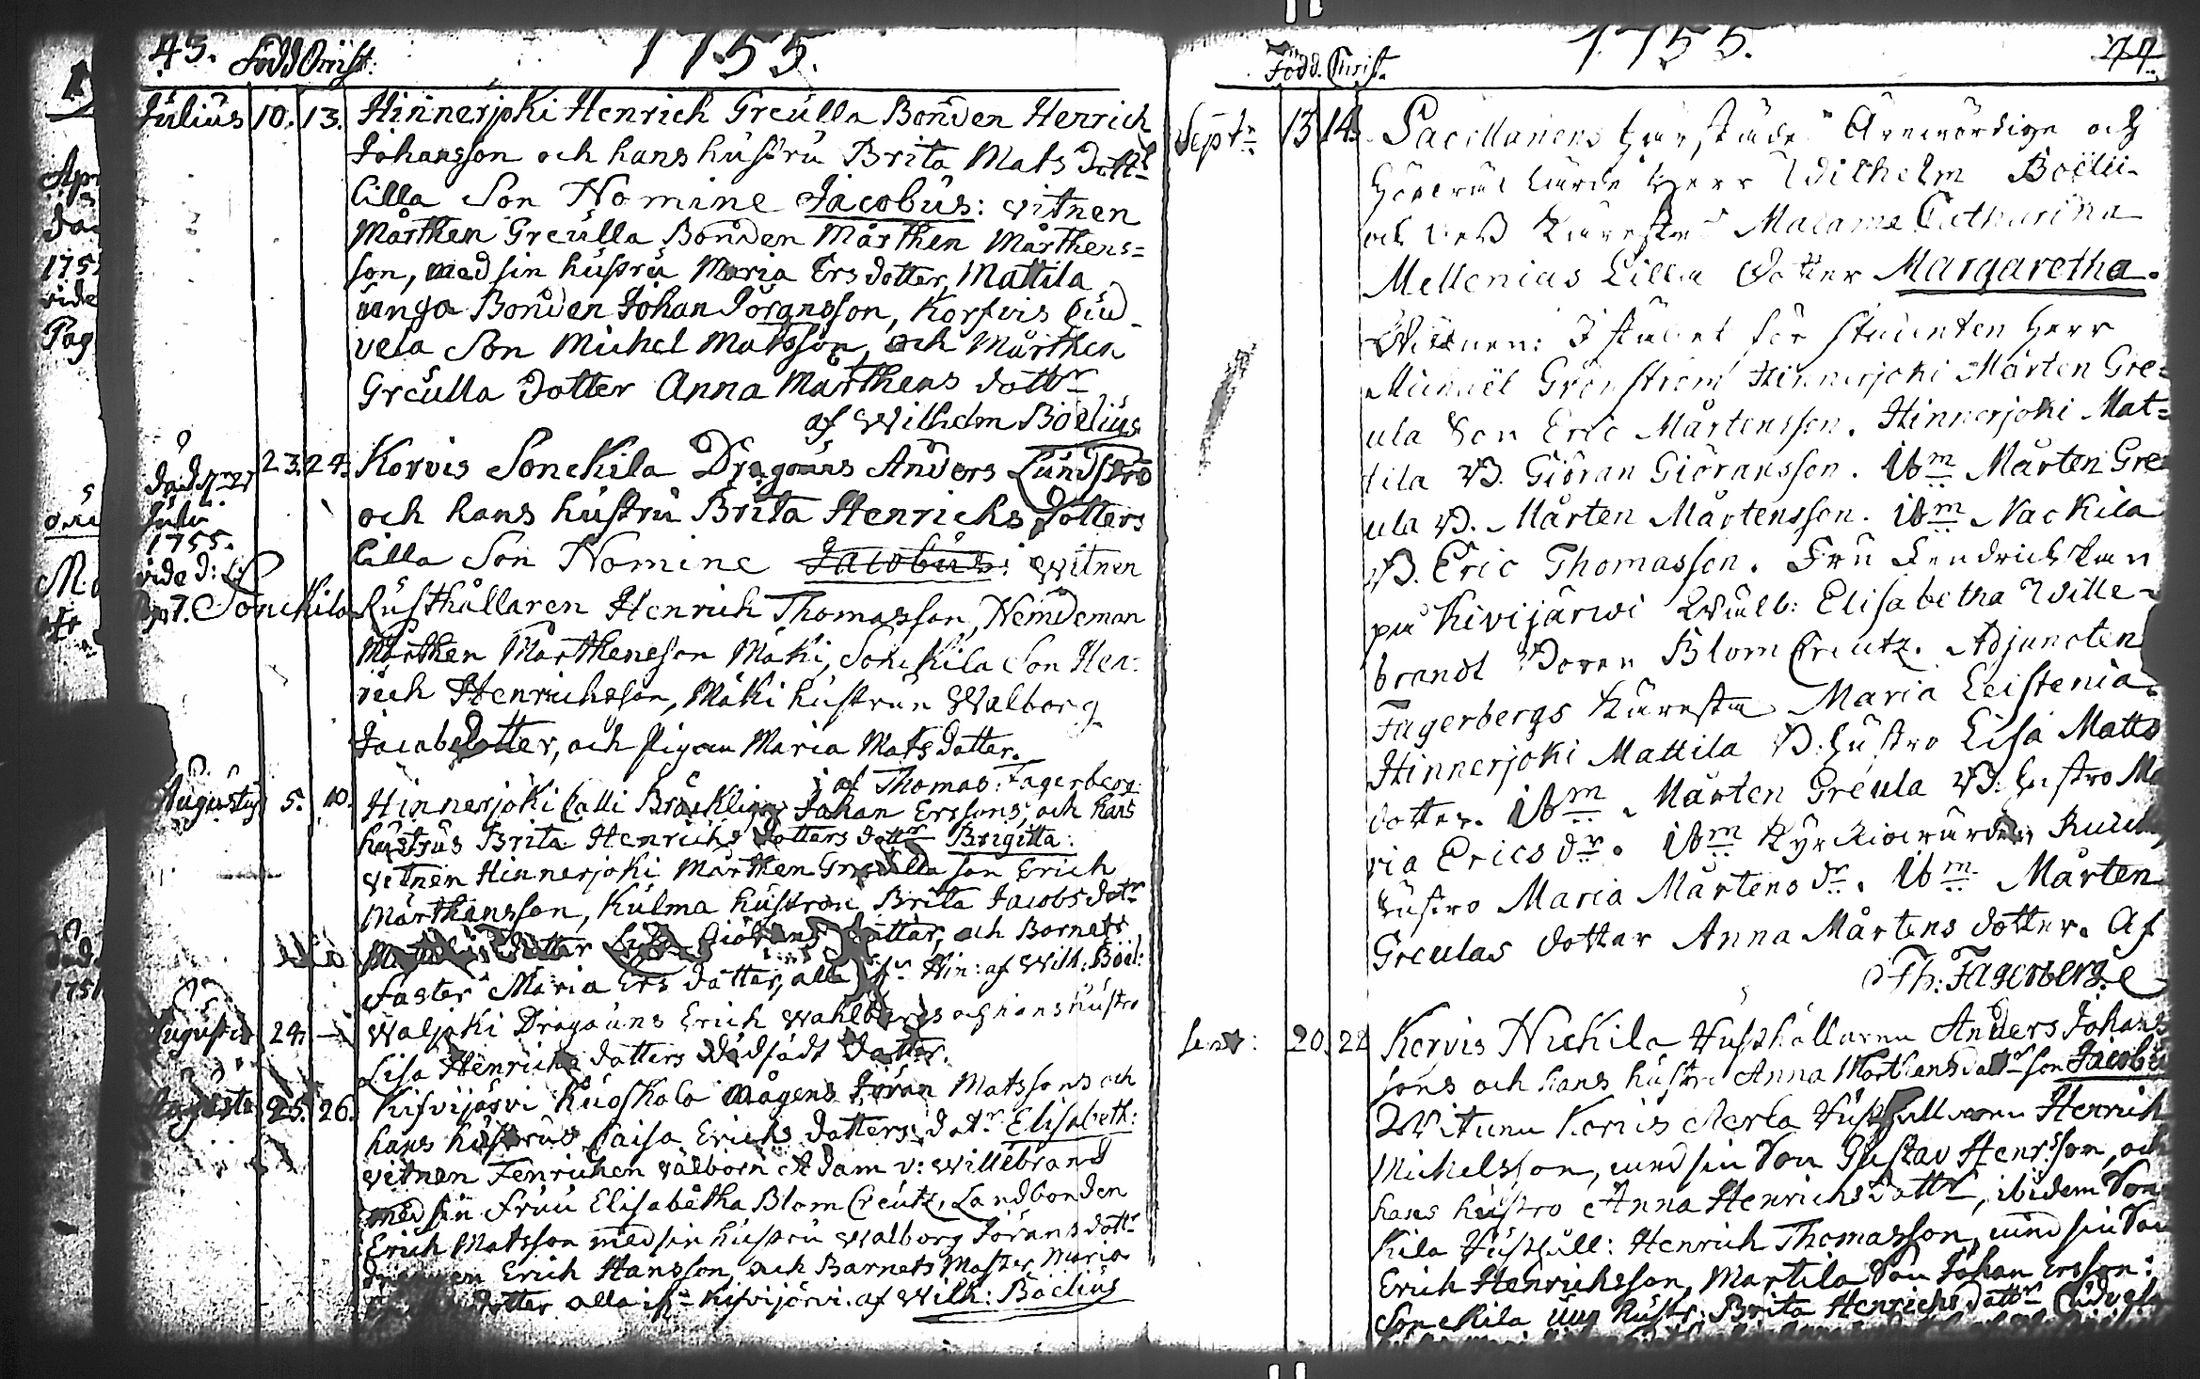 45. Född Christ: 1755.
Julius 10. 13. Hinnerjoki Henrich Greulla Bonden Henrich
Johansson och hans hustru Brita Mats dottr
lilla Son Nomine Jacobus: witnen
Mårthen Greulla Bonden Mårthen Mårthens=
son, med sin hustru Maria Ers dotter, Mattila
unga Bonden Johan Jöransson, Korfvis
vela Son Michel Matsson, och Mårthen
Greulla dotter Anna Mårthens dottr
af Wilhelm Boëlius
23. 24. Korvis Sonckila Dragouns Anders Lundströ
och hans hustru Brita Henrichs dotters
lilla Son Nomine Jacobus: witnen
död
Julii
1755.
vide d:
Sonckila Rusthållaren Henrich Thomasson, Nemdeman
Mårthen Mårthensson Mäki, Sonckila Son Hen:
rich Henrichsson, Mäki hustrun Walborg
Jacobsdotter, och Pigan Maria Mats dotter.
af Thomas: Fagerberg
Augusty 5. 10. Hinnerjoki Calli Johan Erssons, och hans
hustrus Brita Henrichs dotters dottr Brigitta:
witnen Hinnerjoki Mårthen Greulla son Erich
Mårthensson, Kulma hustrun Brita Jacobs dotr
dotter Giörans dotter, och Barnets
Faster Maria Ers dotter, alla fr Hin: af Wilh: Boël:
Augusti 24. — Waljoki Dragouns Erich Wahlbergs och hans hustro
Lisa Henrichs dotters dödfödt dotter.
Augusti 25. 26. Kifvijärvi Kuoskala mågens Jöran Matssons och
hans hustrus Caisa Erichs dotters dotr Elisabeth:
witnen Fenrichen välborn Adam v: Willebrand
med sin Fruu Elisabetha Blom Creutz, Landbonden
Erich Matsson med sin hustru Walborg Jörans dottr
Erich Hansson, och Barnets Moster Maria
dotter alla ifr Kifvijärvi. af Wilh: Boëlius
Född. Christ. 1755. 44.
Septr 13 14. Sacellanens härstädes Ärewördige och
Höglärde Herr Wilhelm Boëlii
och dess Kiäresta Madame Catharina
Mellenias Lilla Dotter Margaretha.
Wittnen: I stället för studenten Herr
Michaël Grönström Hinnerjoki Mårten Gre=
ula Son Eric Mårtensson. Hinnerjoki Mat=
tila B. Giöran Giöransson. Ibm Mårten Gre
ula B. Mårten Mårtensson. Ibm Nackila
B. Eric Thomasson. Fru Fendrickskan
på Kivijärwi Wälb: Elisabetha Wille=
brandt Boren Blom Creutz. Adjuncten
Fagerbergs Kiäresta Maria Leistenia
Hinnerjoki Mattila B. Hustro Lisa Matts
dotter. Ibm. Mårten Greula B. Hustro Ma
ria Erics dr. Ibm Kyrkiowärden
hustro Maria Mårtens dr. Ibm Mårten
Greulas dotter Anna Mårtens dotter. Af
Th: Fagerberg.
Sept: 20. 22 Korvis Nickila Rusthållaren Anders Johans
sons och hans hustru Anna Mårthens dotr son Jacobu
Witnen Korvis Rusthållaren Henrich
Michelsson, med sin Son Gustav Henrsson, och
hans hustro Anna Henrichs dottr, ibidem Son
kila Rusthåll: Henrich Thomasson, med sin Son
Erich Henrichsson, Martila Son Johan Ersson:
Sonckila ung hustr: Brita Henrichs dottr